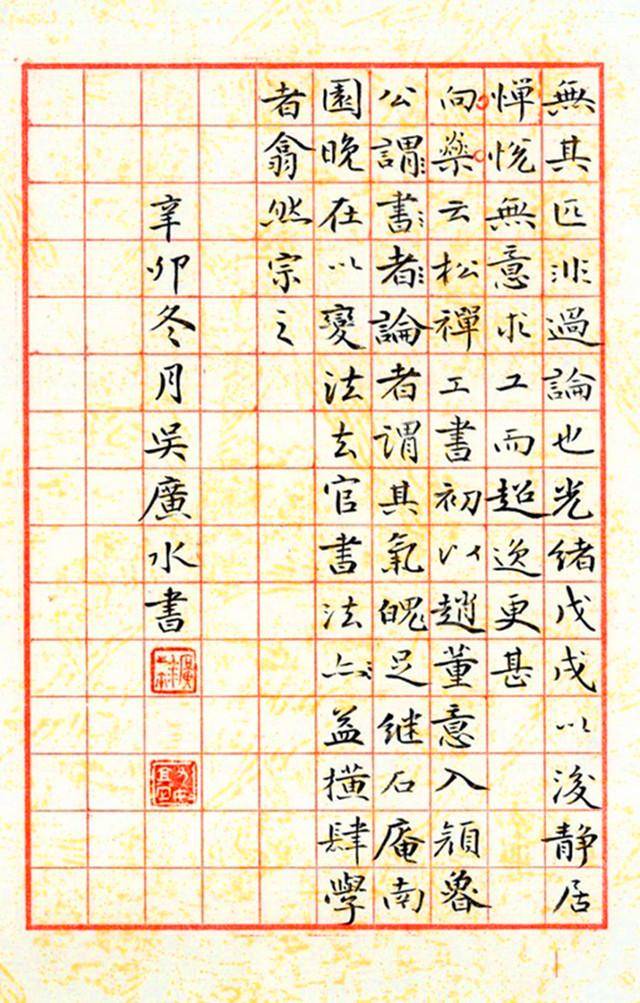 無其匹非過論也光緒戊戌以後静居
憚悅無意求工而超逸更甚
向燊云松禪工書初以趙董意入顏魯
公謂書者論者謂其氣魄足继石庵南
園晚在以變法去官書法亦益橫肆學
者翕然宗之
辛卯冬月吳廣水書